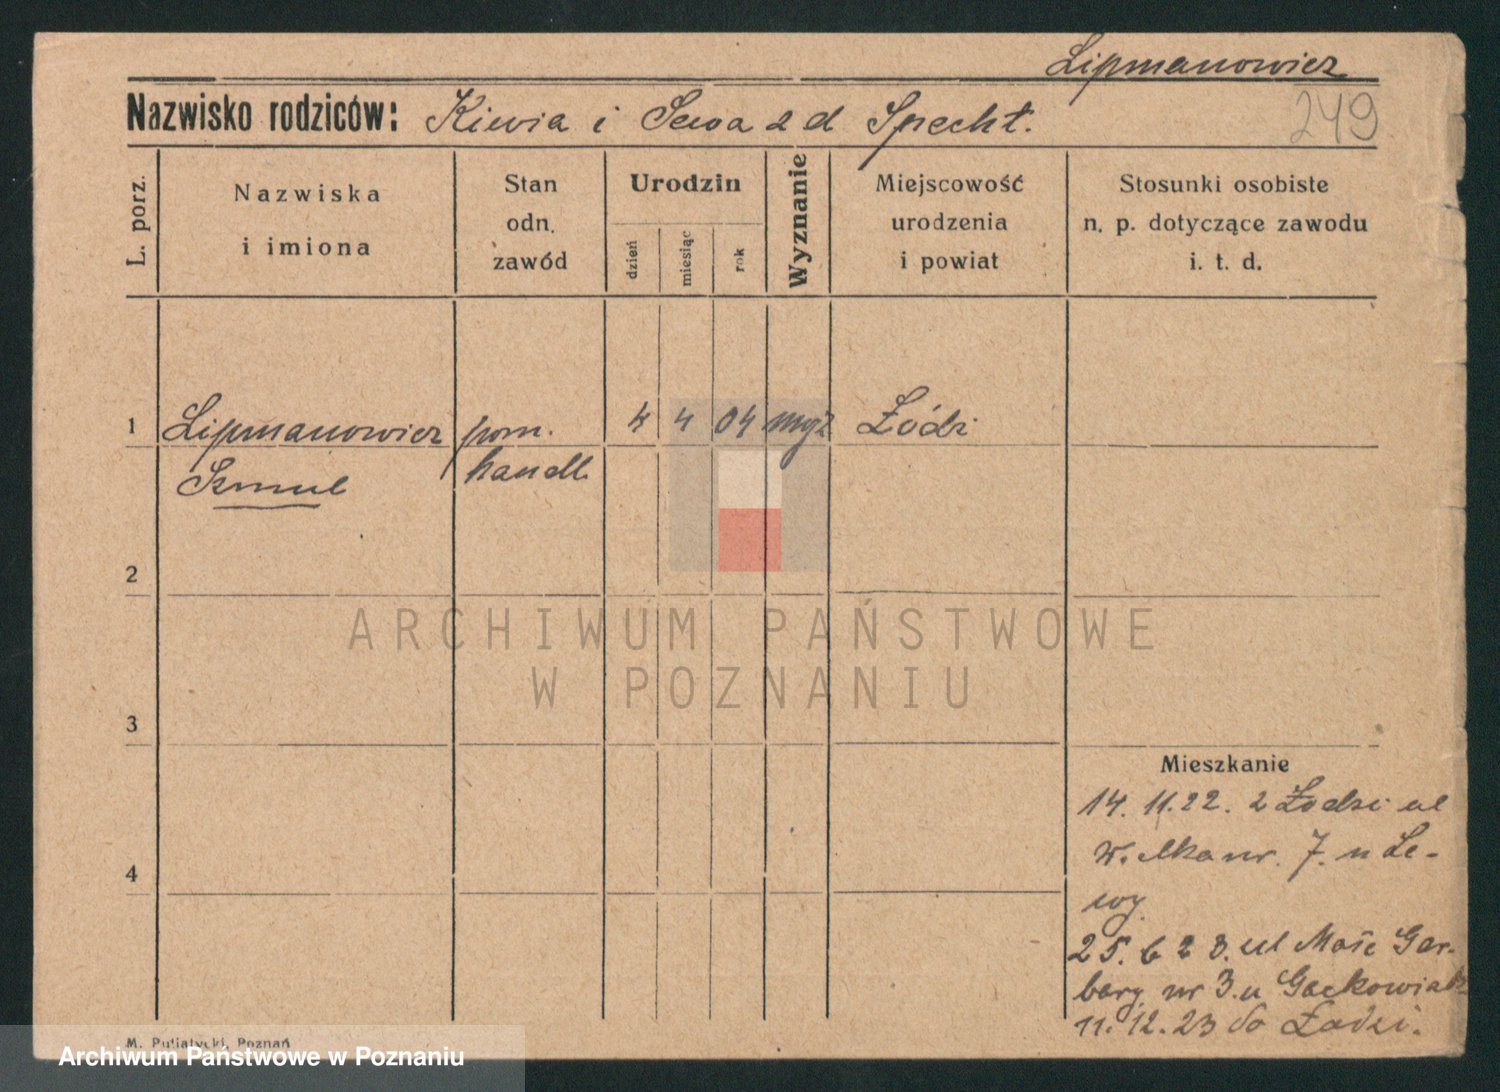 Lipmanowicz
Nazwisko rodziców: Kiwa i Sewa z d Specht.
249
L. porz.
Nazwiska
i imiona
Stan
odn.
zawód
Urodzin
dzień
miesiąc
rok
Wyznanie
Miejscowość
urodzenia
i powiat
Stosunki osobiste
n. p. dotyczące zawodu
i. t. d.
1
Lipmanowicz
pom.
4
4
04
mojż
Łódź
Szmul
handl.
2
ARCHIWUM PAŃSTWOWE
W POZNANIU
3
Mieszkanie
14. 11. 22. z Łodzi ul
nr. 7. u Le-
wy.
4
25. 6 23. ul Małe Gar-
bary nr 3. u Gackowiak
11. 12. 23 do Łodzi.
M. Putiatycki, Poznań
Archiwum Państwowe w Poznaniu